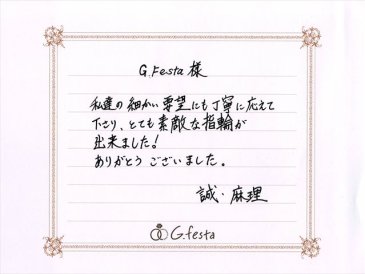 G.Festa 様
私達の細かい要望にも丁寧に応えて
下さり、とても素敵な指輪が
出来ました!
ありがとうございました。
誠・麻理
G.festa